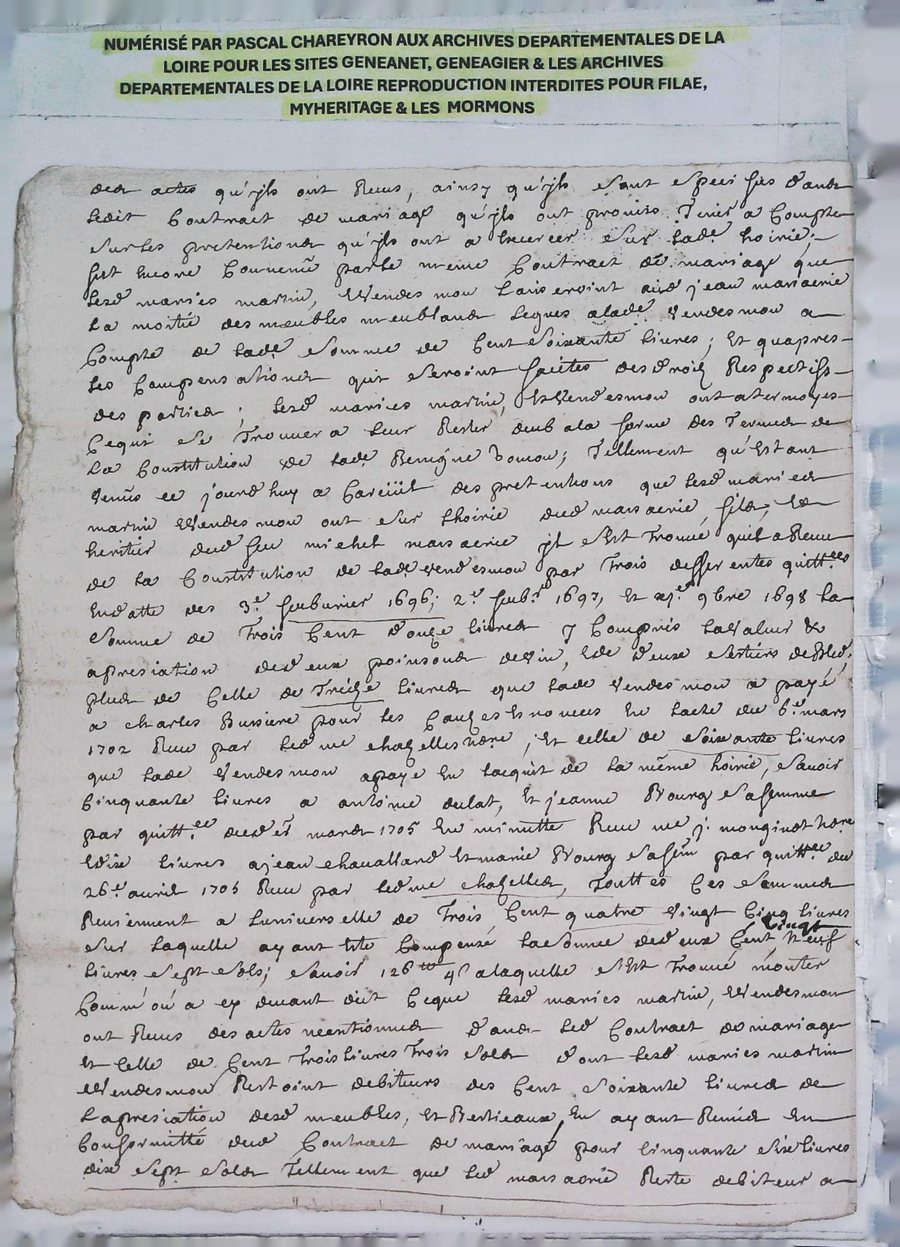 NUMÉRISÉ PAR PASCAL CHAREYRON AUX ARCHIVES DEPARTEMENTALES DE LA
LOIRE POUR LES SITES GENEANET, GENEAGIER & LES ARCHIVES
DEPARTEMENTALES DE LA LOIRE REPRODUCTION INTERDITES POUR FILAE,
MYHERITAGE & LES MORMONS
des actes qu'jls ont Receus, ainsy qu'jls sont speciffiés dans
ledit Contract de mariage qu'jls ont promis Tenir a Compte
sur les pretentions qu'jls ont a exercer sur lade hoirie;
fut encore Convenu par le meme Contract de mariage que
lesd mariés martin, Vendesmon laisseroint aud jean massacrie
la moitié des meubles meublans legués a lade Vendesmon a
Compte de lade somme de Cent soixante livres; Et quapres
les Compensations qui seroint faittes des droits Respectifs
des parties, lesd mariés martin, Et Vendesmon ont atermoyes
Ce qui se Trouvera leur Rester deub a la forme des Termes de
la Constitution de lade Benigne ; Tellement qu'Estant
Venus ce jourdhuy a des pretentions que lesd mariés
martin Vendesmon ont sur lhoirie dud massacrie, fils, Et
heritier dud feu michel massacrie jl s'Est Trouvé quil a Receu
de la Constitution de lade Vendesmon par Trois differentes quittces
En datte des 3e febvrier 1696; 2e febr 1697, Et 9bre 1698 la
somme de Trois Cent douze livres y Compris la Valeur &
apresiation de deux poinsons de vin, & de deux setiers de bled,
plus de Celle de Treize livres que lade Vendesmon a payé
a charles Bussiere pour les Causes Enoncees En lacte du 6e mars
1702 Receu par led me chazelles nore; Et celle de soixante livres
que lade Vendesmon a payé En lacquit de la même hoirie, scavoir
Cinquante livres a antoine dulat, Et jeanne Bourg sa femme
par quittce du mars 1705 En minutte Receu me j. monginot nore
Et dix livres a jean chavalland Et marie Bourg sa fem par quittce du
26e avril 1705 Receu par led me chazelles, Touttes Ces sommes
Reviennent a luniverselle de Trois Cent quatre Vingt Cinq livres
Vingt
sur laquelle ayant Eté Compensé la somme de deux Cent Neuf
livres sept sols; scavoir 126 tt 4s a laquelle s'Est Trouvé monter
Comm'on a cy devant dict Ceque lesd mariés martin, Vendesmon
ont Receus des actes mentionnes dans led Contract de mariage
Et Celle de Cent Trois livres Trois sols dont lesd mariés martin
Vendesmon Restoint debiteurs des Cent soixante livres de
lapresiation desd meubles, Et Bestieaux En ayant Remis En
Conformitté dud Contract de mariage pour Cinquante six livres
dix sept sols Tellement que led massacrie Reste debiteur a